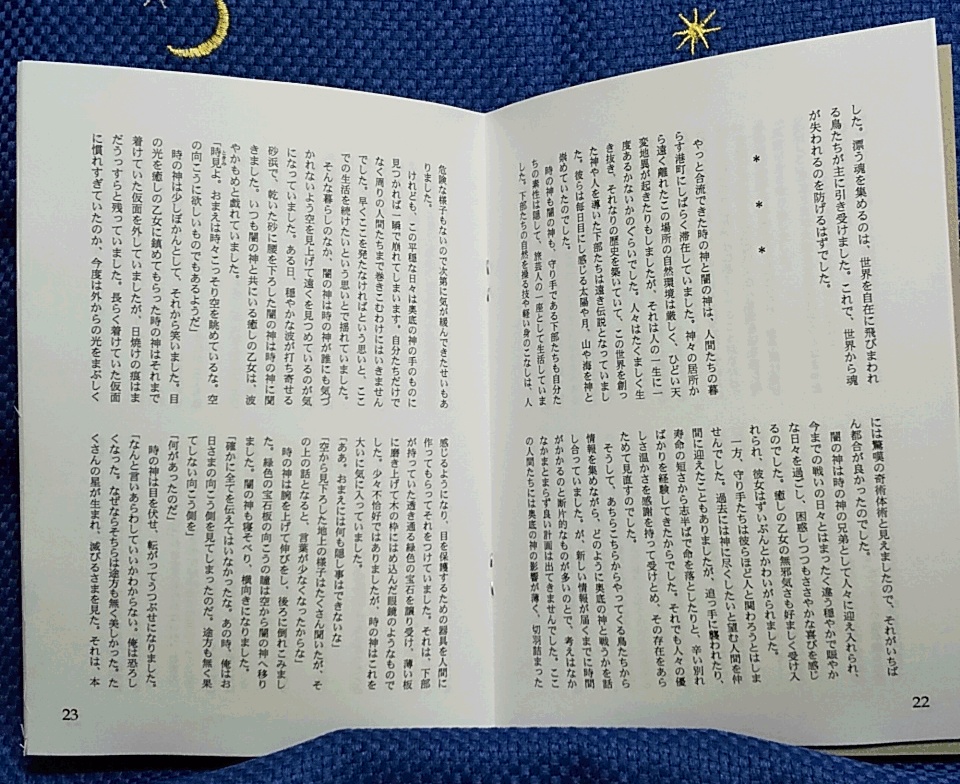 した。漂う魂を集めるのは、世界を自在に飛びまわれ
る鳥たちが主に引き受けました。これで、世界から魂
が失われるのを防げるはずでした。
* * *
やっと合流できた時の神と闇の神は、人間たちの暮
らす港町にしばらく滞在していました。神々の居所か
ら遠く離れたこの場所の自然環境は厳しく、ひどい天
変地異が起きたりもしましたが、それは人の一生に一
度あるかないかのぐらいでした。人々はたくましく生
き抜き、それなりの歴史を築いていて、この世界を創っ
た神や人を導いた下部たちは遠き伝説となっていまし
た。彼らは毎日目にし感じる太陽や月、山や海を神と
崇めていたのでした。
時の神も闇の神も、守り手である下部たちも自分た
ちの素性は隠して、旅芸人の一座として生活していま
した。下部たちの自然を操る技や軽い身のこなしは、人
には驚嘆の奇術体術と見えましたので、それがいちば
ん都合が良かったのでした。
闇の神は時の神の兄弟として人々に迎え入れられ、
今までの戦いの日々とはまったく違う穏やかで賑やか
な日々を過ごし、困惑しつつもささやかな喜びを感じ
るのでした。癒しの乙女の無邪気さも好ましく受け入
れられ、彼女はずいぶんとかわいがられました。
一方、守り手たちは彼らほど人と関わろうとはしま
せんでした。過去には神に尽くしたいと望む人間を仲
間に迎えたこともありましたが、追っ手に襲われたり、
寿命の短さから志半ばで命を落としたりと、辛い別れ
ばかりを経験してきたからでした。それでも人々の優
しさ温かさを感謝を持って受けとめ、その存在をあら
ためて見直すのでした。
そうして、あちらこちらからやってくる鳥たちから
情報を集めながら、どのように奥底の神と戦うかを話
し合っていましたが、新しい情報が届くまでに時間
がかかるのと断片的なものが多いのとで、考えはなか
なかまとまらず良い計画は出てきませんでした。ここ
の人間たちには奥底の神の影響が薄く、切羽詰まった
22
危険な様子もないので次第に気が緩んできたせいもあ
りました。
けれども、この平穏な日々は奥底の神の手のものに
見つかれば一瞬で崩れてしまいます。自分たちだけで
なく周りの人間たちまで巻きこむわけにはいきません
でした。早くここを発たなければという思いと、ここ
での生活を続けたいという思いとで揺れていました。
そんな暮らしのなか、闇の神は時の神が誰にも気づ
かれないよう空を見上げて遠くを見つめているのが気
になっていました。ある日、穏やかな波が打ち寄せる
砂浜で、乾いた砂に腰を下ろした闇の神は時の神に聞
きました。いつも闇の神と共にいる癒しの乙女は、波
やかもめと戯れていました。
「時見よ、おまえは時々こっそり空を眺めているな。空
の向こうに欲しいものでもあるようだ」
時の神は少しぽかんとして、それから笑いました。目
の光を癒しの乙女に鎮めてもらった時の神はそれまで
着けていた仮面を外していましたが、日焼けの痕はま
だうっすらと残っていました。長らく着けていた仮面
に慣れすぎていたのか、今度は外からの光をまぶしく
感じるようになり、目を保護するための器具を人間に
作ってもらってそれをつけていました。それは、下部
が持っていた透き通る緑色の宝石を譲り受け、薄い板
に磨き上げて木の枠にはめ込んだ眼鏡のようなもので
した。少々不恰好ではありましたが、時の神はこれを
大いに気に入っていました。
「ああ。おまえには何も隠し事はできないな」
「空から見下ろした地上の様子はたくさん聞いたが、そ
の上の話となると、言葉が少なくなったからな」
時の神は腕を上げて伸びをし、後ろに倒れこみまし
た。緑色の宝石板の向こうの瞳は空から闇の神へ移り
ました。闇の神も寝そべり、横向きになりました。
「確かに全てを伝えてはいなかったな。あの時、俺はお
日さまの向こう側を見てしまったのだ。途方も無く果
てしない向こう側を」
「何があったのだ」
時の神は目を伏せ、転がってうつぶせになりました。
「なんと言いあらわしていいかわからない。俺は恐ろし
くなった。なぜならそちらは途方も無く美しかった。た
くさんの星が生まれ、滅びるさまを見た。それは、本
23